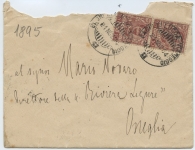 1895
al sigr Mario Novaro
Direttore della "Riviera Ligure"
Oneglia